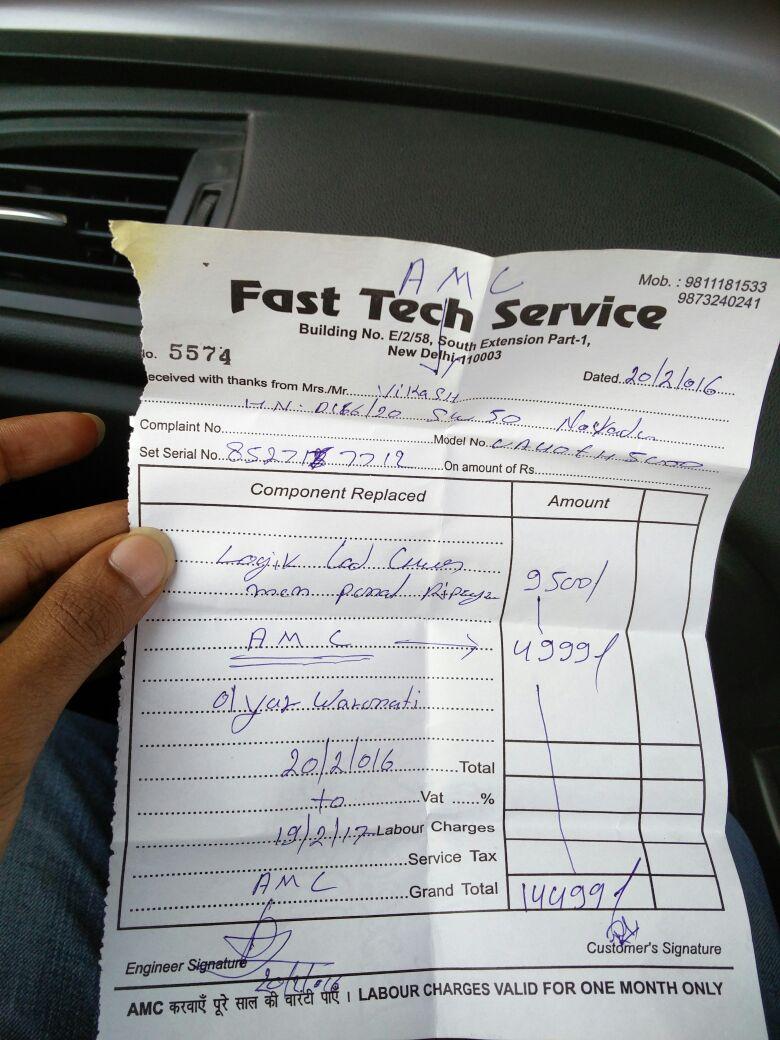 AMC
Mob. : 9811181533
9873240241
Fast Tech Service
Building No. E/2/58, South Extension Part-1,
New Delhi-110003
No. 5574
Dated 20/2/016
eceived with thanks from Mrs./Mr. Vikash
H.N. D166/20 50
Complaint No. Model No.
Set Serial No. 8527 7712 On amount of Rs.
Component Replaced Amount
Logik Lcd
panal 9500/
AMC → 4999/
01 year waronati
20/2/016 Total
to Vat ......%
19/2/17 Labour Charges
Service Tax
AMC Grand Total 14499/
Customer's Signature
Engineer Signature
20/2/016
AMC करवाएँ पूरे साल की वारंटी पाएँ । LABOUR CHARGES VALID FOR ONE MONTH ONLY